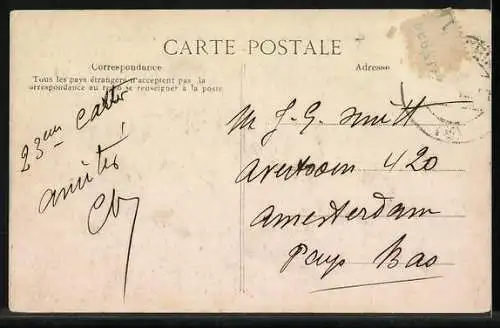 CARTE POSTALE
Correspondance
Tous les pays étrangers n'acceptent pas la
correspondance au recto se renseigner à la poste
Adresse
23em carte
amitié
M J. G. Smitt
420
Amesterdam
Pays Bas